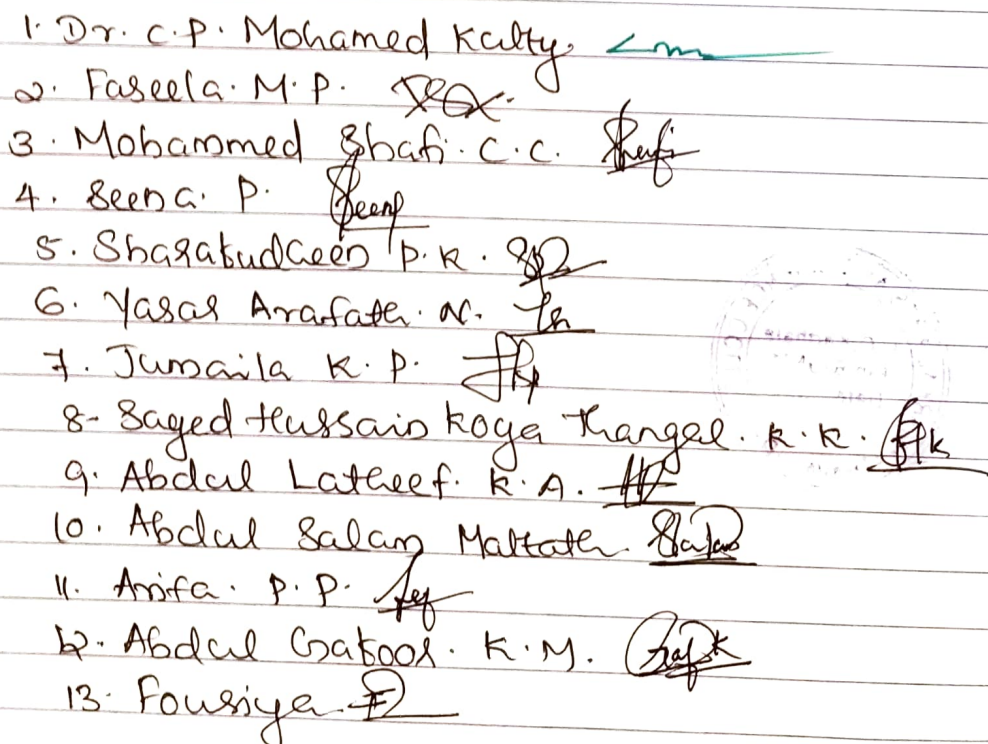 1. Dr. C.P. Mohamed Kutty
2. Faseela. M.P.
3. Mohammed Shafi. C.C. Shafi
4. Seena. P. Seena
5. Sharafudheen P.K.
6. Yasar Arafath. N.
7. Jumaila K.P.
8- Sayed Hussain Koya Thangal. K.K.
9. Abdul Latheef. K.A.
10. Abdul Salam Maltath Salam
11. Arifa. P.P.
12. Abdul Gafoor. K.M.
13. Fousiya